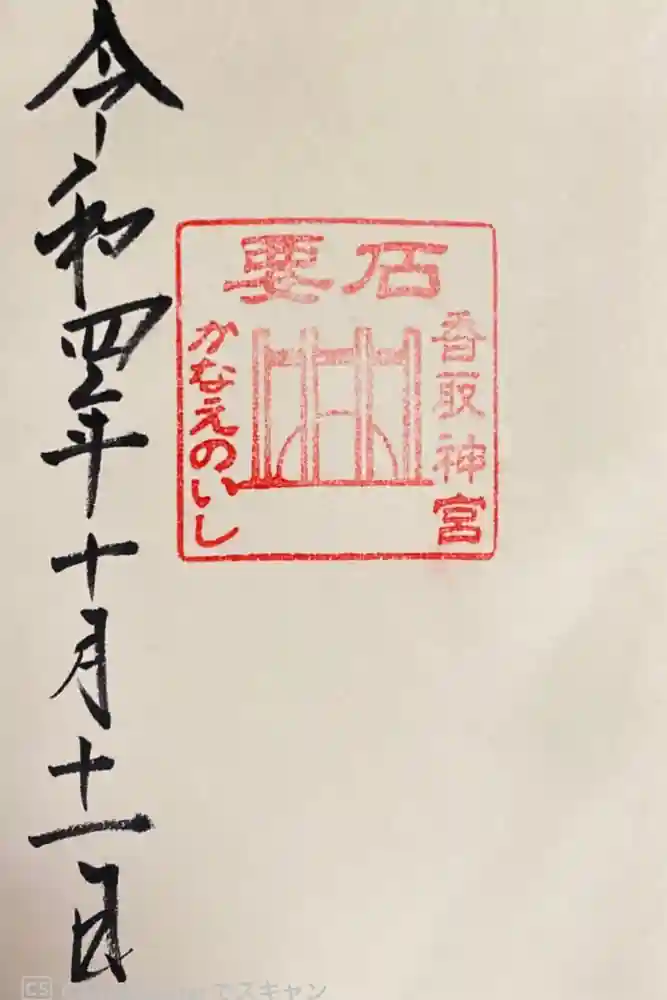 要石
香取神宮
かなえのいし
令和四年十月十一日
CS
でスキャン